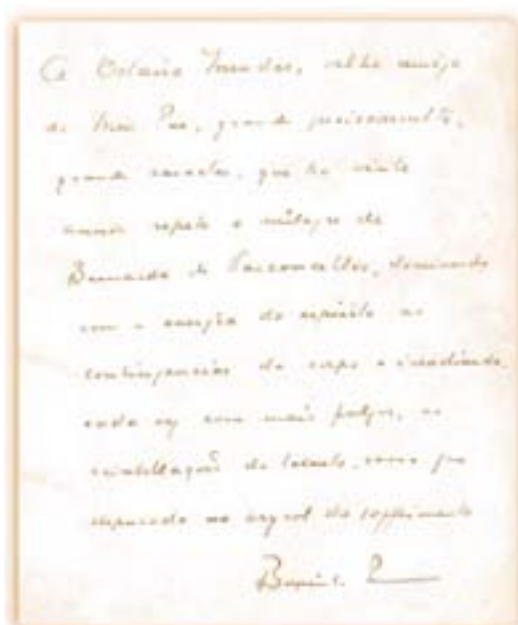 A Octavio Mendes, velho amigo
de Meu Pae, grande jurisconsulto,
grande caracter, que ha vinte
annos repete o milagre de
Bernardo de Vasconcellos, dominando
com a energia do espirito as
contingencias do corpo e irradiando,
cada vez com mais fulgor, as
scintillações do talento, como que
depurado no crysol do soffrimento